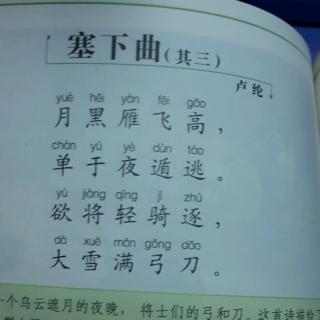 塞下曲(其三)
卢纶
yuè hēi yàn fēi gāo
月黑雁飞高，
chán yú yè dùn táo
单于夜遁逃。
yù jiàng qīng jì zhú
欲将轻骑逐，
dà xuě mǎn gōng dāo
大雪满弓刀。
一个乌云遮月的夜晚，将士们的弓和刀。这首诗描绘